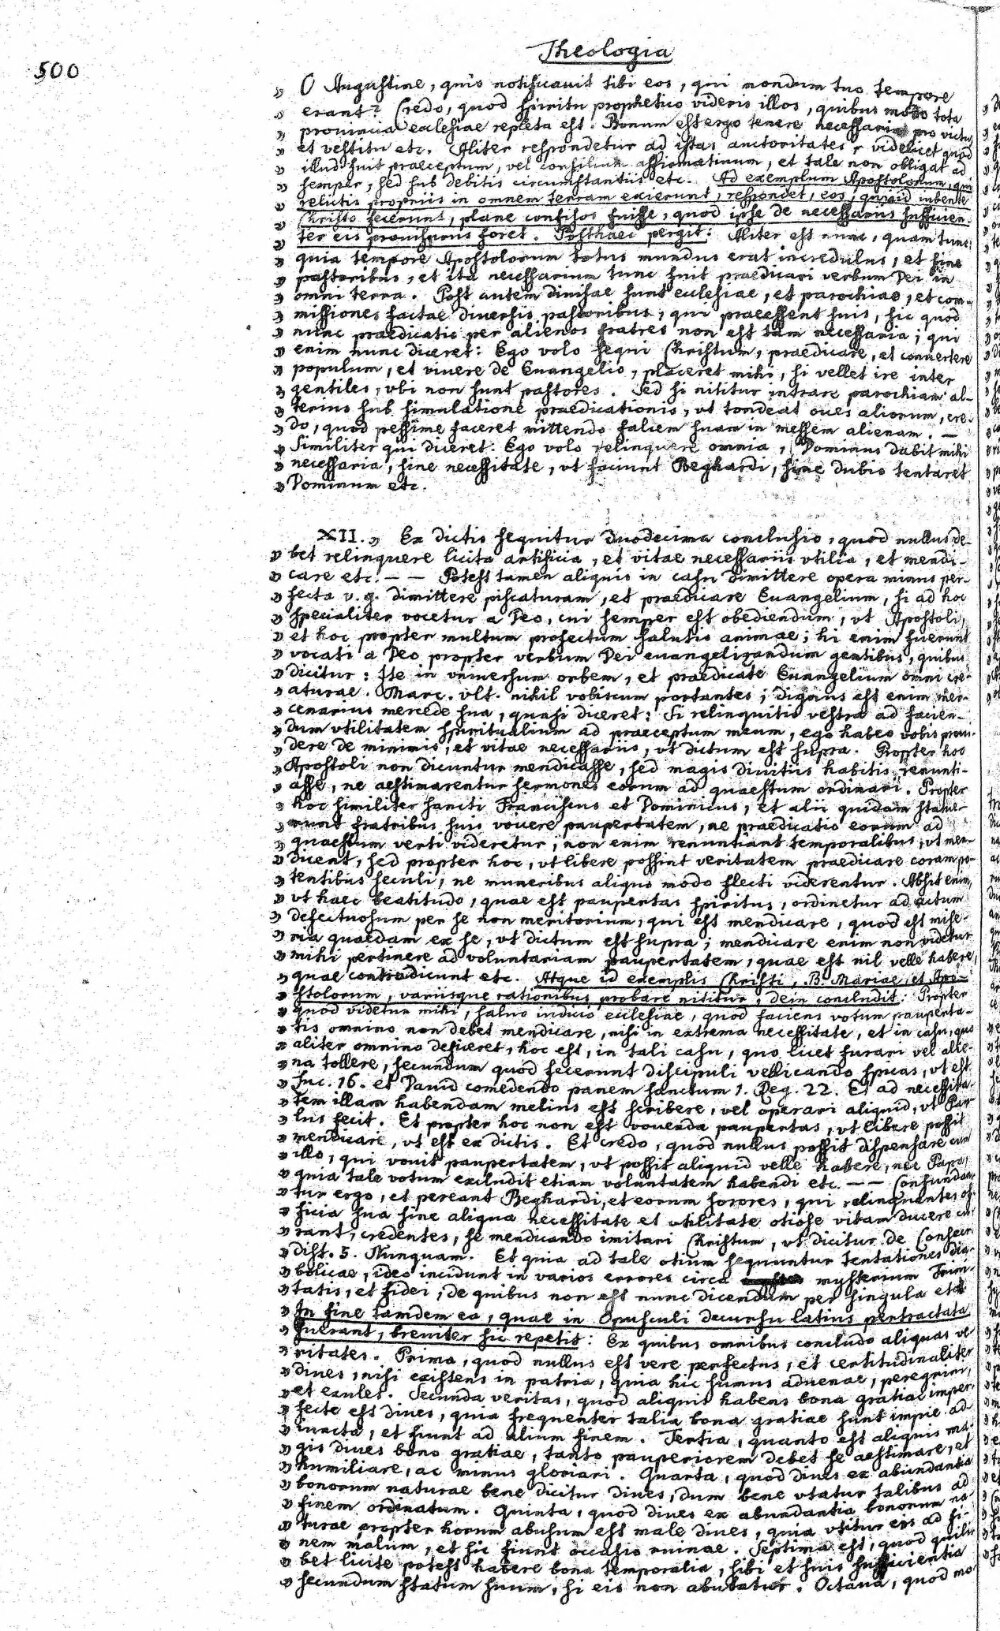 500
Theologia
„ O Augustine, quis notificauit tibi eos, qui nondum tuo tempore
„ erant? Credo, quod spiritu prophetico videris illos, quibus modo tota
„ prouincia ecclesiae repleta est. Bonum est ergo tenere necessaria pro victu
„ et vestitu etc. Aliter respondetur ad istas auctoritates, videlicet quod
„ illud fuit praeceptum, vel consilium affirmatiuum, et tale non obligat ad
„ semper, sed sub debitis circumstantiis etc. Ad exemplum Apostolorum, qui
„ relictis propriis in omnem terram exierunt, respondet, eos, quia id iubente
„ Christo fecerunt, plane confisos fuisse, quod ipse de necessariis sufficien-
„ ter eis prouisurus foret. Posthaec pergit: Aliter est nunc, quam tunc,
„ quia tempore Apostolorum totus mundus erat incredulus, et sine
„ pastoribus, et ita necessarium tunc fuit praedicari verbum Dei in
„ omni terra. Post autem diuisae sunt ecclesiae, et parochiae, et com-
„ missiones factae diuersis pastoribus, qui praeessent suis, sic quod
„ nunc praedicatio per alienos fratres non est tam necessaria; qui
„ enim nunc diceret: Ego volo sequi Christum, praedicare, et conuertere
„ populum, et viuere de Euangelio, placeret mihi, si vellet ire inter
„ gentiles, vbi non sunt pastores. Sed si nititur intrare parochiam al-
„ terius sub simulatione praedicationis, vt tondeat oues aliorum, cre-
„ do, quod pessime faceret mittendo falcem suam in messem alienam. —
„ Similiter qui diceret: Ego volo relinquere omnia, Dominus dabit mihi
„ necessaria, sine necessitate, vt faciunt Beghardi, sine dubio tentaret
„ Dominum etc.
XII. „ Ex dictis sequitur duodecima conclusio, quod nullus de-
„ bet relinquere licita artificia, et vitae necessariis vtilia, et mendi-
„ care etc. — — Potest tamen aliquis in casu dimittere opera minus per-
„ fecta v. g. dimittere piscaturam, et praedicare Euangelium, si ad hoc
„ specialiter vocetur a Deo, cui semper est obediendum, vt Apostoli,
„ et hoc propter multum profectum salutis animae; hi enim fuerunt
„ vocati a Deo propter verbum Dei euangelizandum gentibus, quibus
„ dicitur: Ite in vniuersum orbem, et praedicate Euangelium omni cre-
„ aturae. Marc. vlt. nihil vobiscum portantes; dignus est enim mer-
„ cenarius mercede sua, quasi diceret: Si relinquitis vestra ad facien-
„ dum vtilitatem spiritualium ad praeceptum meum, ego habeo vobis proui-
„ dere de minimis, et vitae necessariis, vt dictum est supra. Propter hoc
„ Apostoli non dicuntur mendicasse, sed magis diuitiis habitis renunti-
„ asse, ne aestimarentur sermones eorum ad quaestum ordinari. Propter
„ hoc similiter sancti Franciscus et Dominicus, et alii quidam statue-
„ runt fratribus suis vouere paupertatem, ne praedicatio eorum ad
„ quaestum verti videretur; non enim renuntiant temporalibus, vt men-
„ dicent, sed propter hoc, vt libere possint veritatem praedicare coram po-
„ tentibus seculi, ne muneribus aliquo modo flecti viderentur. Absit enim,
„ vt haec beatitudo, quae est paupertas spiritus, ordinetur ad actum
„ defectuosum per se non meritorium, qui est mendicare, quod est mise-
„ ria quaedam ex se, vt dictum est supra; mendicare enim non videtur
„ mihi pertinere ad voluntariam paupertatem, quae est nil velle habere,
„ quae contradicunt etc. Atque id exemplis Christi, B. Mariae, et Apo-
„ stolorum, variisque rationibus probare nititur, dein concludit: Propter
„ quod videtur mihi, saluo iudicio ecclesiae, quod faciens votum pauperta-
„ tis omnino non debet mendicare, nisi in extrema necessitate, et in casu, quo
„ aliter omnino deficeret, hoc est, in tali casu, quo licet furari vel alie-
„ na tollere, secundum quod fecerunt discipuli vellicando spicas, vt est
„ Luc. 16. et Dauid comedendo panem sanctum 1. Reg. 22. Et ad necessita-
„ tem illam habendam melius est scribere, vel operari aliquid, vt Pau-
„ lus fecit. Et propter hoc non est vouenda paupertas, vt libere possit
„ mendicare, vt est ex dictis. Et credo, quod nullus possit dispensare cum
„ illo, qui vouit paupertatem, vt possit aliquid velle habere, nec Papa,
„ quia tale votum excludit etiam voluntatem habendi etc. — — Confundan-
„ tur ergo, et pereant Beghardi, et eorum sorores, qui relinquentes of-
„ ficia sua sine aliqua necessitate et vtilitate otiose vitam ducere cu-
„ rant, credentes, se mendicando imitari Christum, vt dicitur de Consecr.
„ dist. 5. Nunquam. Et quia ad tale otium sequuntur tentationes dia-
„ bolicae, ideo incidunt in varios errores circa mysterium Trini-
„ tatis, et fidei; de quibus non est nunc dicendum per singula etc.
„ In fine tandem ea, quae in Opusculi decursu latius pertractata
„ fuerant, breuiter sic repetit: Ex quibus omnibus concludo aliquas ve-
„ ritates. Prima, quod nullus est vere perfectus, et certitudinaliter
„ diues, nisi existens in patria, quia hic sumus aduenae, peregrini,
„ et exules. Secunda veritas, quod aliquis habens bona gratiae imper-
„ fecte est diues, quia frequenter talia bona gratiae sunt impie ad-
„ iuncta, et fiunt ad alium finem. Tertia, quanto est aliquis ma-
„ gis diues bono gratiae, tanto pauperiorem debet se aestimare, et
„ humiliare, ac minus gloriari. Quarta, quod diues ex abundantia
„ bonorum naturae bene dicitur diues, dum bene vtatur talibus ad
„ finem ordinatum. Quinta, quod diues ex abundantia bonorum na-
„ turae propter horum abusum est male diues, quia vtitur eis ad fi-
„ nem malum, et sic fiunt occasio ruinae. Septima est, quod quili-
„ bet licite potest habere bona temporalia, sibi et suis sufficientia
„ secundum statum suum, si eis non abutatur. Octaua, quod mo-